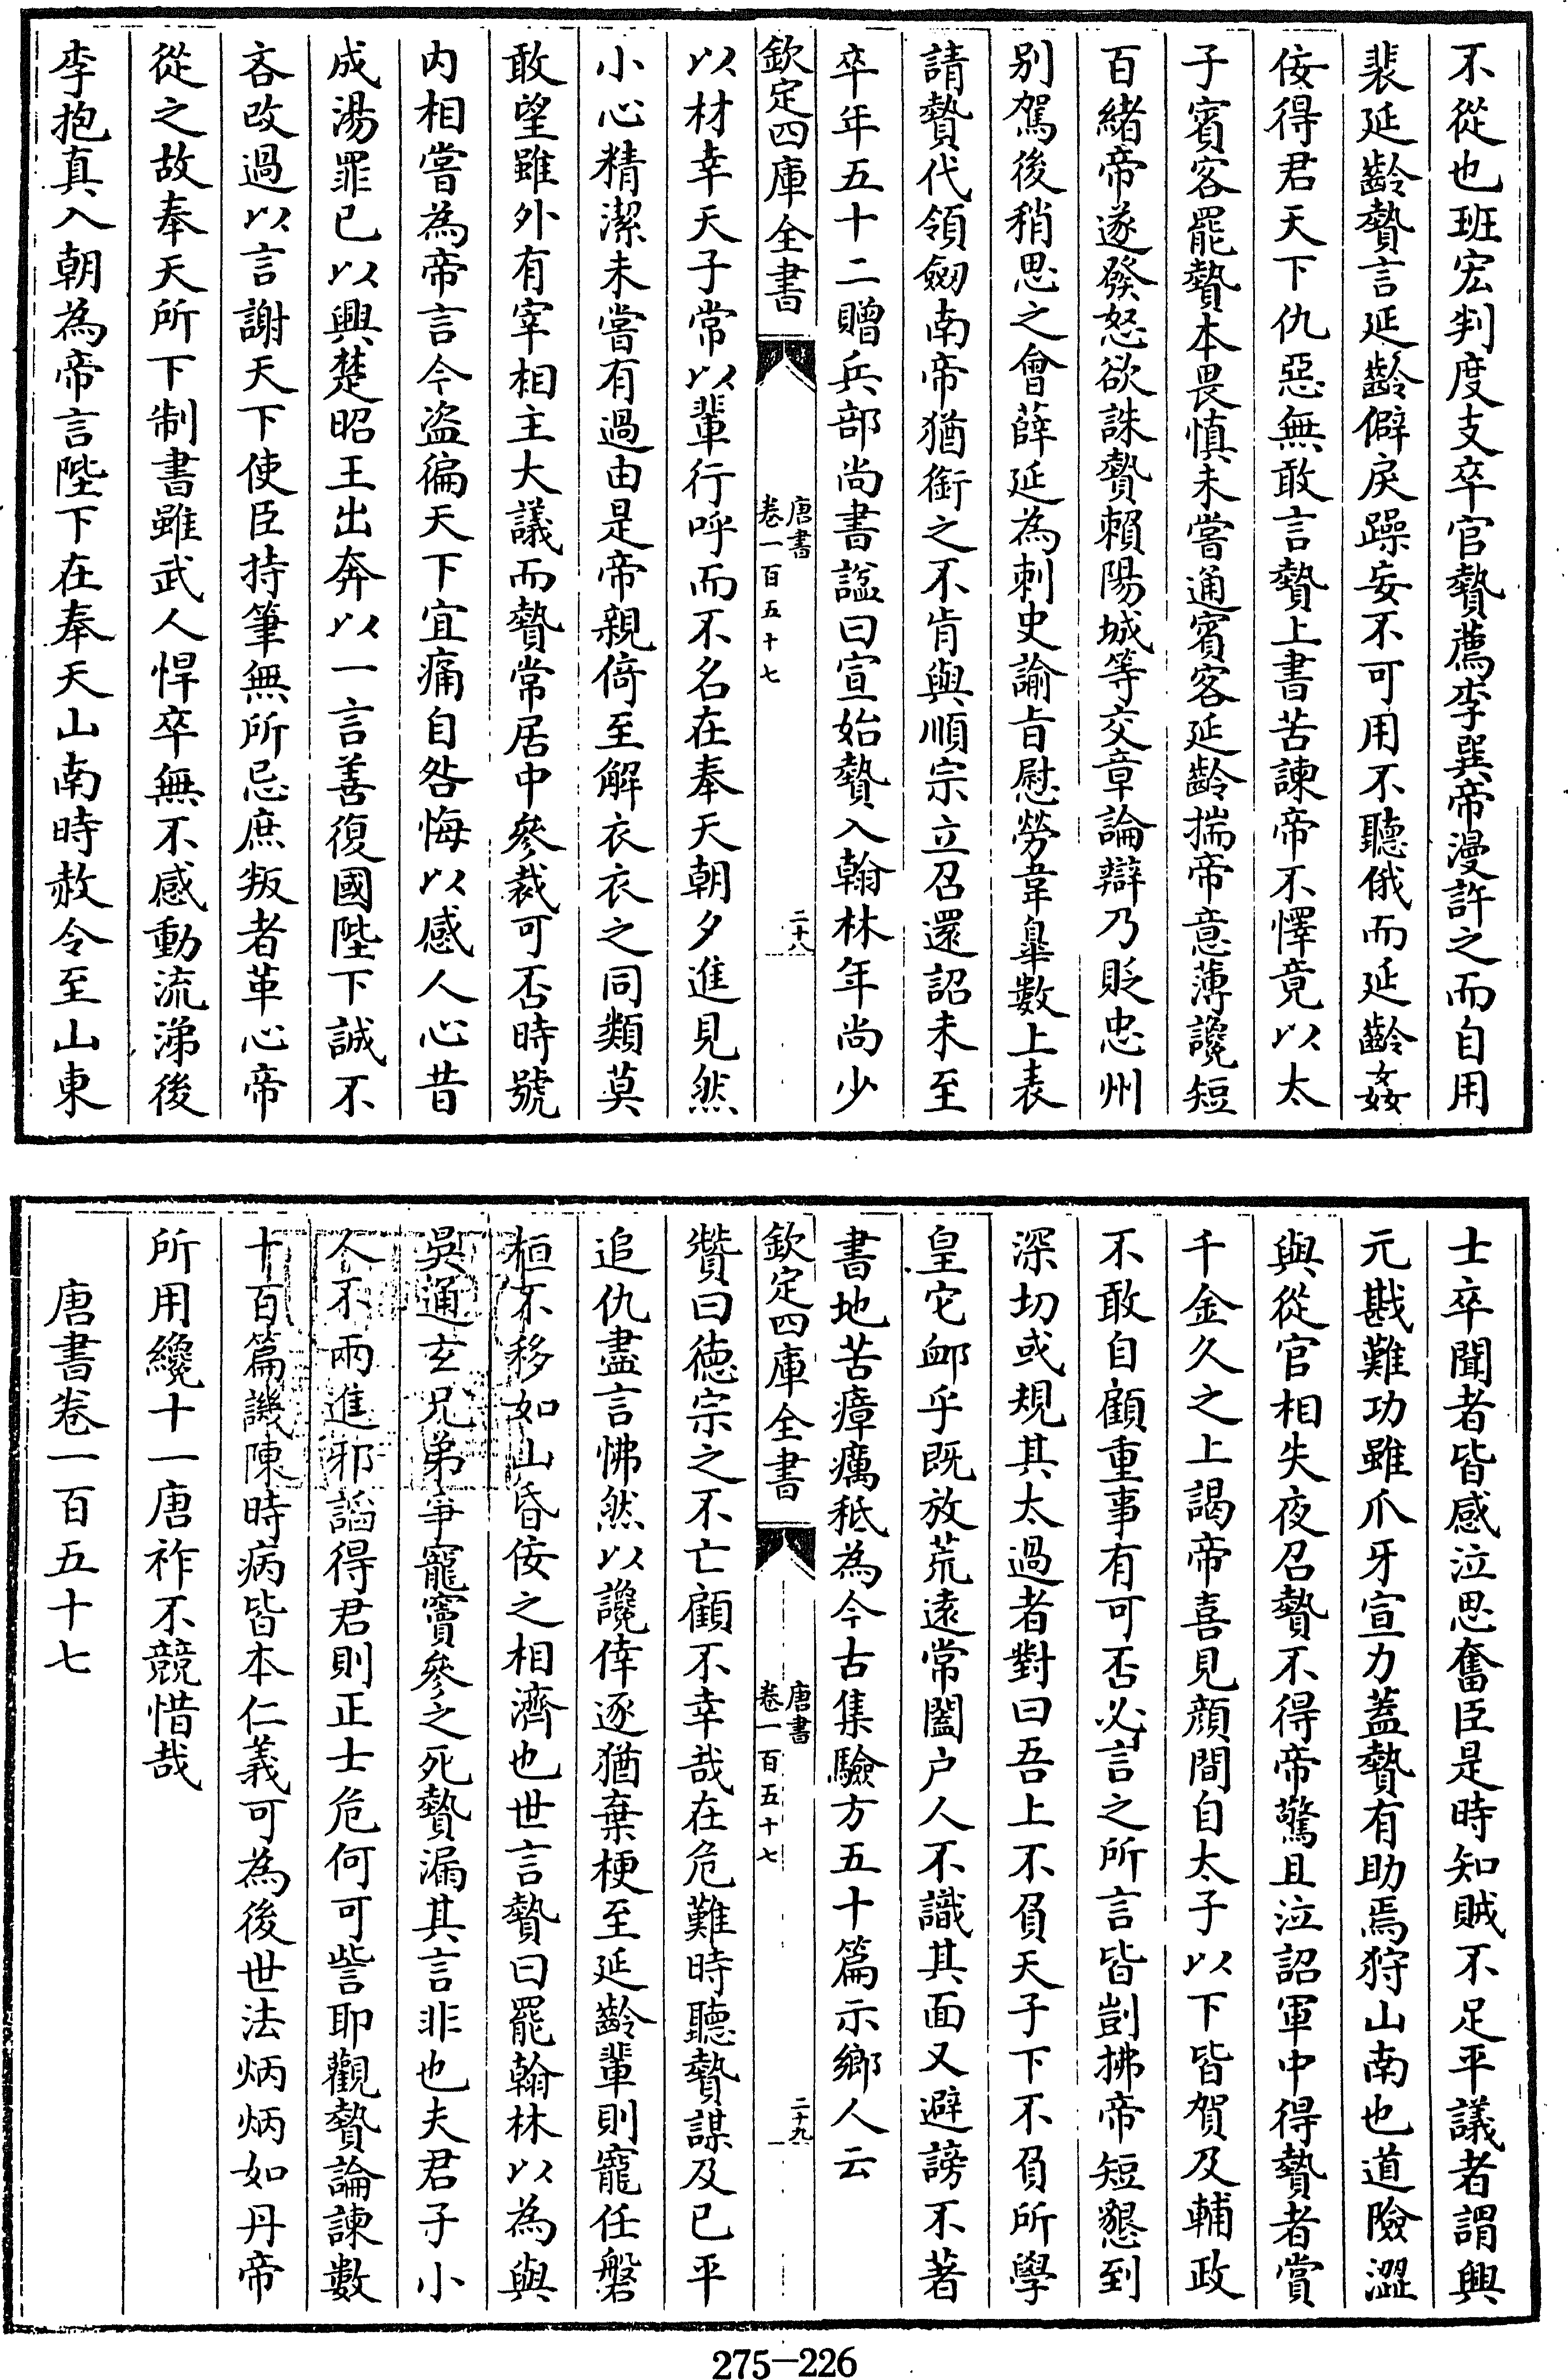 不從也班宏判度支卒官贄薦李巽帝漫許之而自用
裴延齡贄言延齡僻戾躁妄不可用不聽俄而延齡姦
佞得君天下仇惡無敢言贄上書苦諫帝不懌竟以太
子賓客罷贄本畏慎未嘗通賓客延齡揣帝意薄讒短
百緒帝遂發怒欲誅贄賴陽城等交章論辯乃貶忠州
别駕後稍思之會薛延為刺史諭旨慰勞韋臯數上表
請贄代領劒南帝猶銜之不肯與順宗立召還詔未至
卒年五十二贈兵部尚書諡曰宣始贄入翰林年尚少
欽定四庫全書
唐書
卷一百五十七
二十八
以材幸天子常以輩行呼而不名在奉天朝夕進見然
小心精潔未嘗有過由是帝親倚至解衣衣之同類莫
敢望雖外有宰相主大議而贄常居中參裁可否時號
内相嘗為帝言今盗徧天下宜痛自咎悔以感人心昔
成湯罪已以興楚昭王出奔以一言善復國陛下誠不
吝改過以言謝天下使臣持筆無所忌庶叛者革心帝
從之故奉天所下制書雖武人悍卒無不感動流涕後
李抱真入朝為帝言陛下在奉天山南時赦令至山東
士卒聞者皆感泣思奮臣是時知賊不足平議者謂興
元戡難功雖爪牙宣力蓋贄有助焉狩山南也道險澀
與從官相失夜召贄不得帝驚且泣詔軍中得贄者賞
千金久之上謁帝喜見顔間自太子以下皆賀及輔政
不敢自顧重事有可否必言之所言皆剴拂帝短懇到
深切或規其太過者對曰吾上不負天子下不負所學
皇它䘏乎既放荒遠常闔户人不識其面又避謗不著
書地苦瘴癘秪為今古集驗方五十篇示鄉人云
欽定四庫全書
唐書
卷一百五十七
二十九
贊曰德宗之不亡顧不幸哉在危難時聽贄謀及已平
追仇盡言怫然以讒倖逐猶棄梗至延齡輩則寵任磐
桓不移如山昏佞之相濟也世言贄曰罷翰林以為與
吳通玄兄弟爭寵竇參之死贄漏其言非也夫君子小
人不兩進邪諂得君則正士危何可訾耶觀贄論諫數
十百篇譏陳時病皆本仁義可為後世法炳炳如丹帝
所用纔十一唐祚不競惜哉
唐書卷一百五十七
275-226